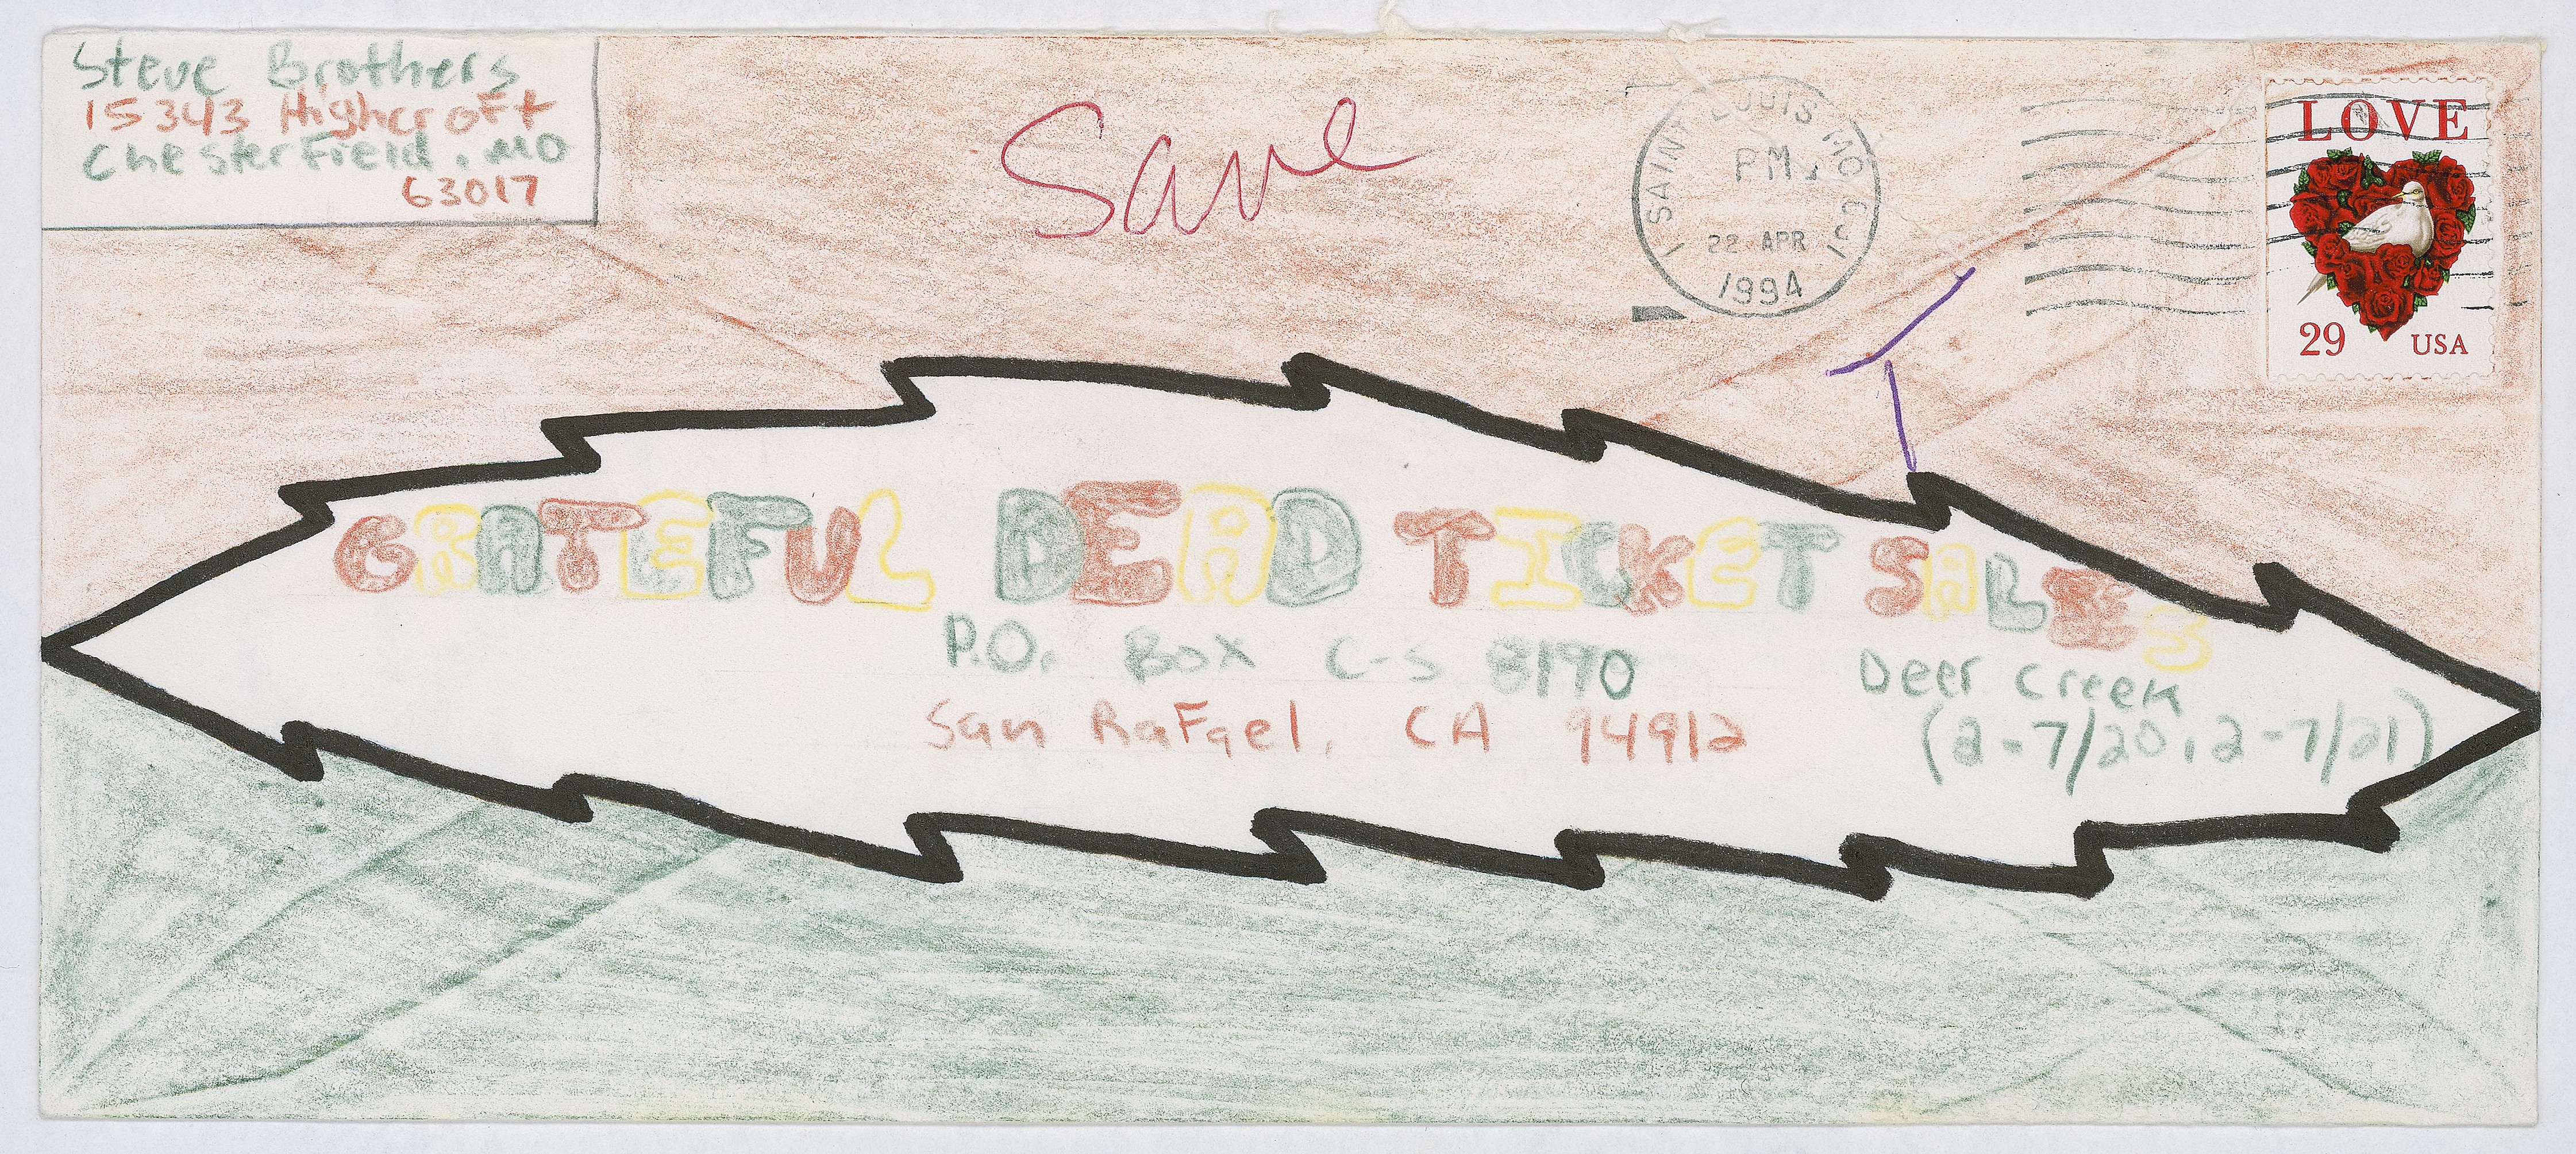 Steve Brothers
15343 Highcroft
Chesterfield, MO
63017
Save
SAINT LOUIS MO
PM
22 APR
1994
LOVE
29 USA
GRATEFUL DEAD TICKET SALES
P.O. Box C-S 8190
San RaFael, CA 94912
Deer Creek
(2-7/20, 2-7/21)